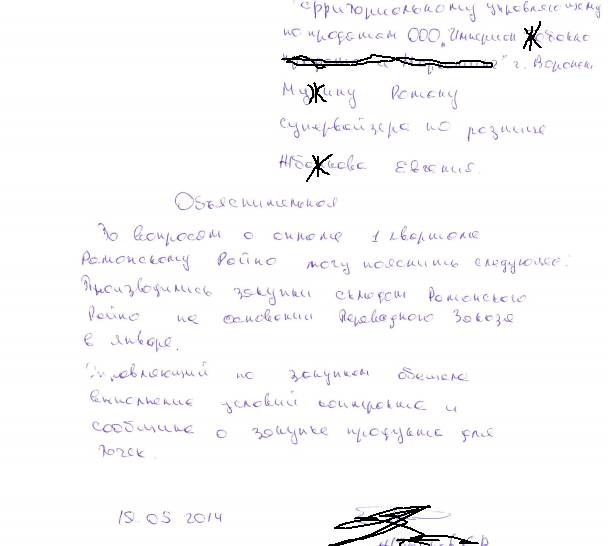 Территориальному управляющему
по продажам ООО "Империя
г. Воронеж
Роману
Супервайзера по рознице
Евгения.
Объяснительная
По вопросам о 1 квартала
Рамонскому Райпо могу пояснить следующее:
Производились закупки складом Рамонского
Райпо на основании Заказа
в январе.
Управляющий по закупкам обещала
выполнение условий контракта и
сообщила о закупке продукта для
точек.
19.05 2014